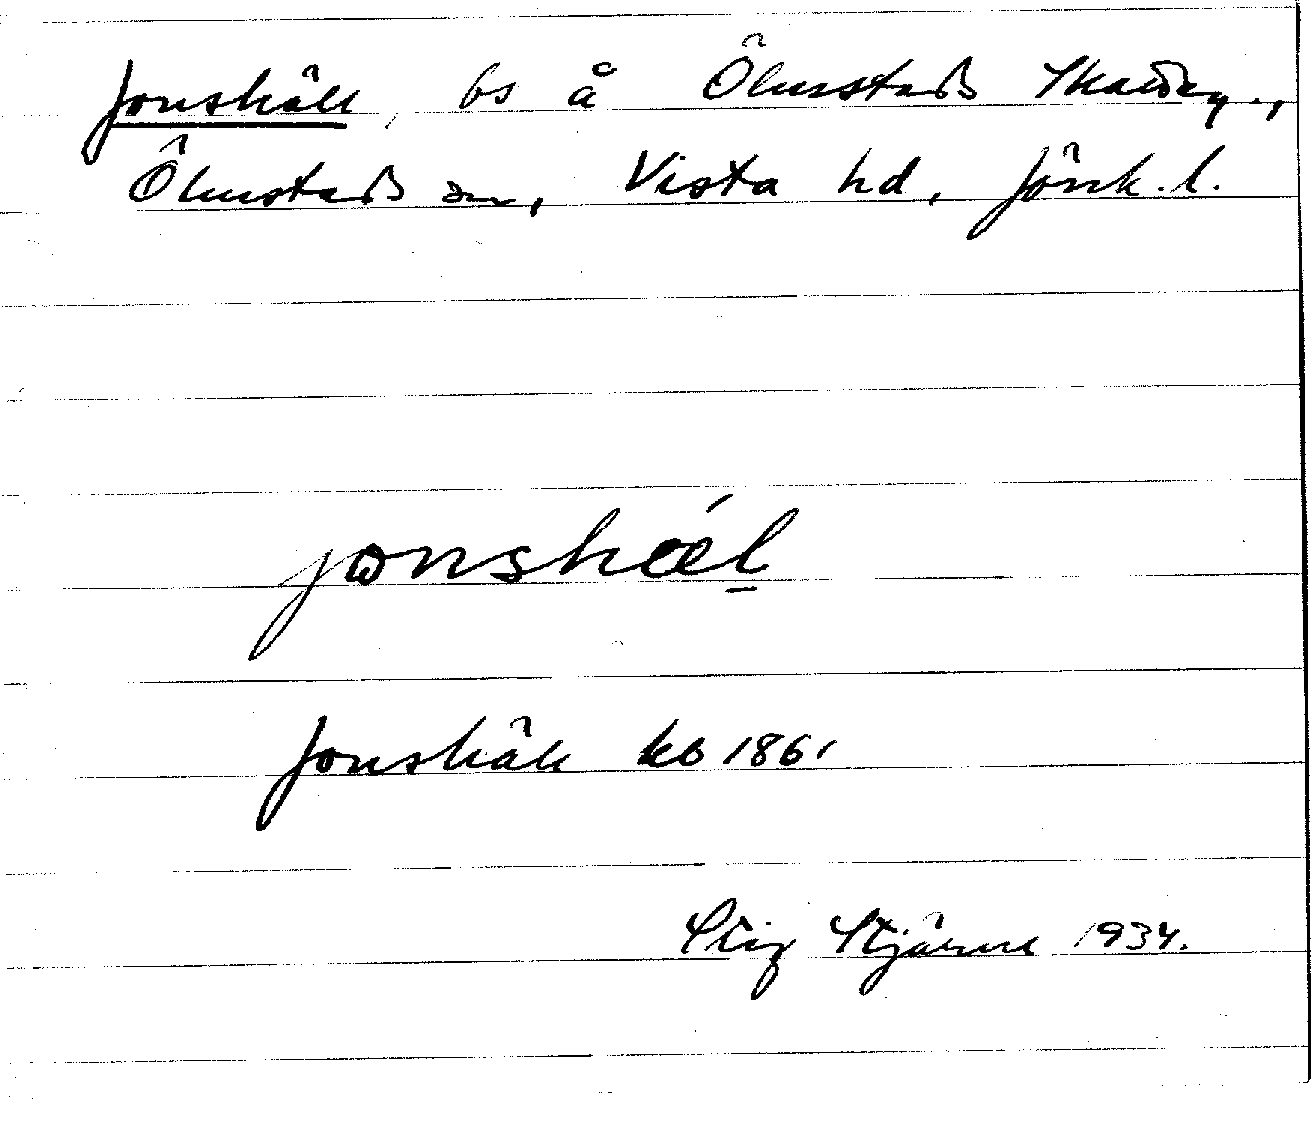 Jonshäll, bs å Ölmstads Skatteg.,
Ölmstads sn, Vista hd, Jönk. l.
jonshæ´l
Jonshäll kb 1861
Stig Stjärne 1934.